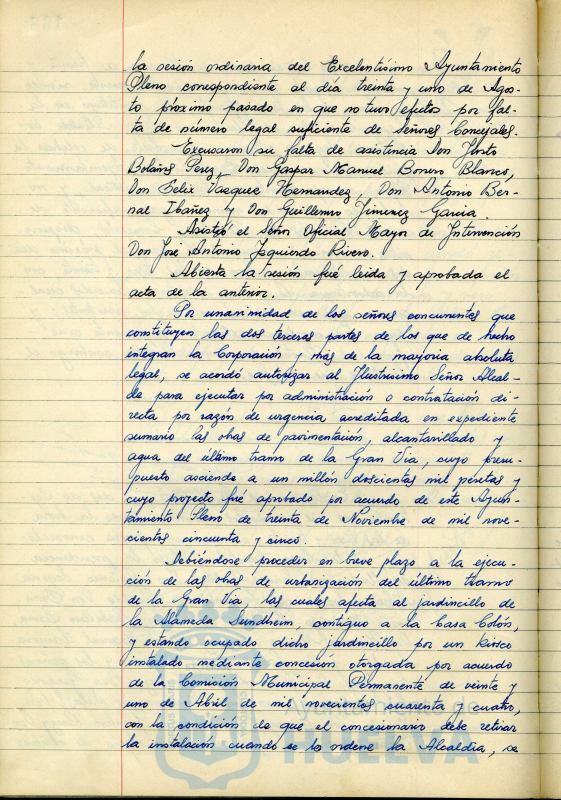 la sesión ordinaria del Excelentísimo Ayuntamiento
Pleno correspondiente al día treinta y uno de Agos-
to próximo pasado en que no tuvo efectos por fal-
ta de número legal suficiente de Señores Concejales.
Excusaron su falta de asistencia Don Justo
Bolaños Perez, Don Gaspar Manuel Bonero Blanco,
Don Felix Vazquez Hernandez, Don Antonio Ber-
nal Ibañez y Don Guillermo Jimenez Garcia.
Asistió el Señor Oficial Mayor de Intervención
Don José Antonio Izquierdo Rivero.
Abierta la sesión fué leida y aprobada el
acta de la anterior.
Por unanimidad de los señores concurrentes que
constituyen las dos terceras partes de los que de hecho
integran la Corporación y más de la mayoria absoluta
legal, se acordó autorizar al Ilustrísimo Señor Alcal-
de para ejecutar por administración o contratación di-
recta por razón de urgencia acreditada en expediente
sumario las obras de pavimentación, alcantarillado y
agua del último tramo de la Gran Via, cuyo presu-
puesto asciende a un millón doscientas mil pesetas y
cuyo proyecto fué aprobado por acuerdo de este Ayun-
tamiento Pleno de treinta de Noviembre de mil nove-
cientos cincuenta y cinco.
Debiéndose proceder en breve plazo a la ejecu-
ción de las obras de urbanización del último tramo
de la Gran Via, las cuales afecta al jardincillo de
la Alameda Sundheim, contiguo a la Casa Colón,
y estando ocupado dicho jardincillo por un kiosco
instalado mediante concesión otorgada por acuerdo
de la Comisión Municipal Permanente de veinte y
uno de Abril de mil novecientos cuarenta y cuatro,
con la condición de que el concesionario debe retirar
la instalación cuando se lo ordene la Alcaldia, se
HUELVA